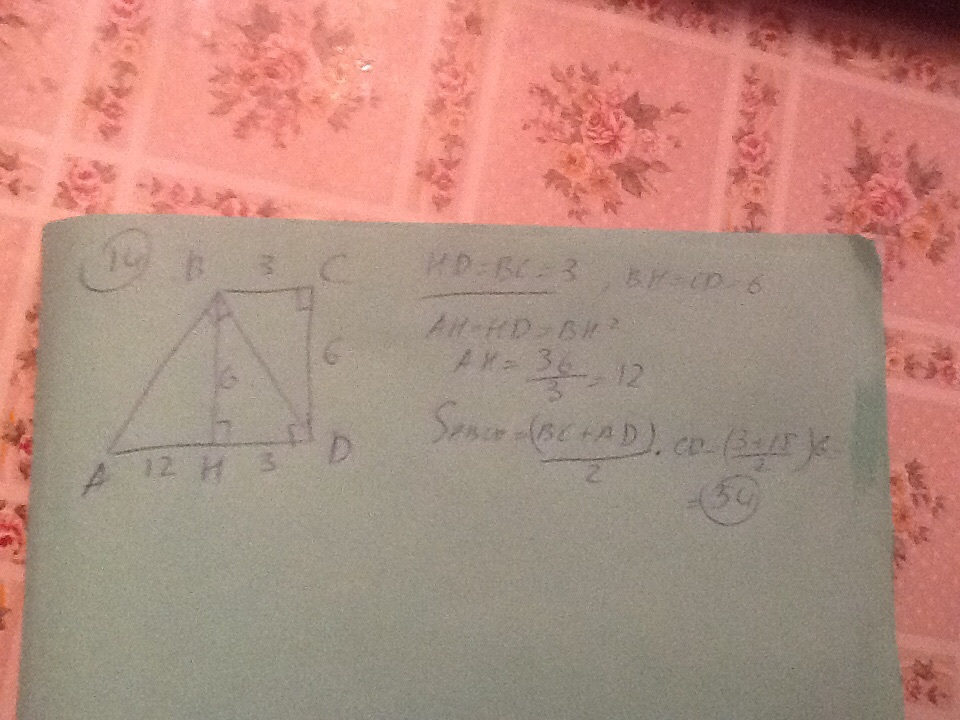 14
B 3 C
6
6
A 12 H 3 D
HD=BC=3, BH=CD=6
AH·HD=BH²
AH=36/3=12
SABCD=(BC+AD)/2·CD=(3+15/2)6=
=54